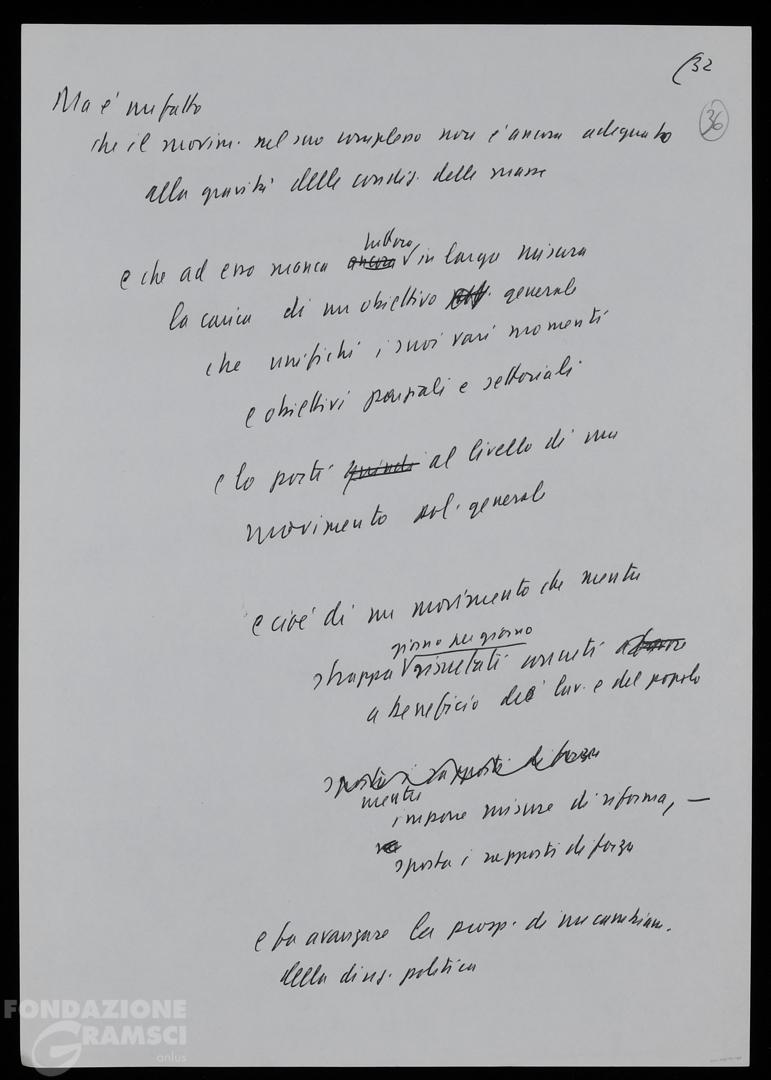 (32
36
Ma è un fatto
che il movim. nel suo complesso non è ancora adeguato
alla gravità delle condiz. delle masse
tuttora
e che ad esso manca ancora in larga misura
la carica di un obiettivo generale
che unifichi i suoi vari momenti
e obiettivi parziali e settoriali
e lo porti quindi al livello di un
movimento pol. generale
e cioè di un movimento che mentre
giorno per giorno
strappa risultati concreti
a beneficio dei lav. e del popolo
sposta i rapporti di forza
mentre
impone misure di riforma, —
sposta i rapporti di forza
e fa avanzare la prosp. di un cambiam.
della direz. politica
FONDAZIONE
GRAMSCI
onlus